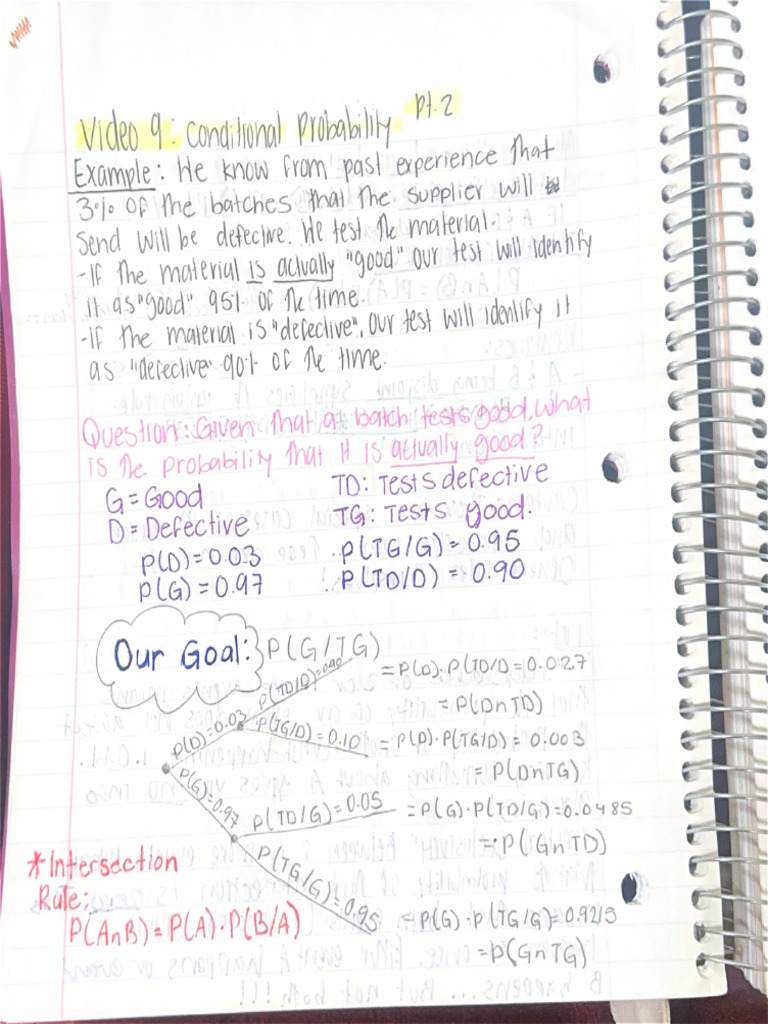 Video 9: Conditional Probability Pt.2
Example: We know from past experience that
3% of the batches that the supplier will
send will be defective. We test the material.
-If the material is actually "good" our test will identify
it as "good" 95% of the time.
-if the material is "defective", our test will identify it
as "defective" 90% of the time.
Question: Given that a batch tests good, what
is the probability that it is actually good?
G = Good TD: Tests defective
D = Defective TG: Tests good.
P(D) = 0.03 P(TG/G) = 0.95
P(G) = 0.97 P(TD/D) = 0.90
Our Goal: P(G/TG)
P(TD/D)=0.90 = P(D)·P(TD/D = 0.027
= P(D∩TD)
P(D)=0.03 P(TG/D) = 0.10 = P(D)·P(TG/D) = 0.003
= P(D∩TG)
P(G)=0.97 P(TD/G) = 0.05 = P(G)·P(TD/G) = 0.0485
= P(G∩TD)
P(TG/G) = 0.95 = P(G)·P(TG/G) = 0.9215
= P(G∩TG)
*Intersection
Rule:
P(A∩B) = P(A)·P(B/A)